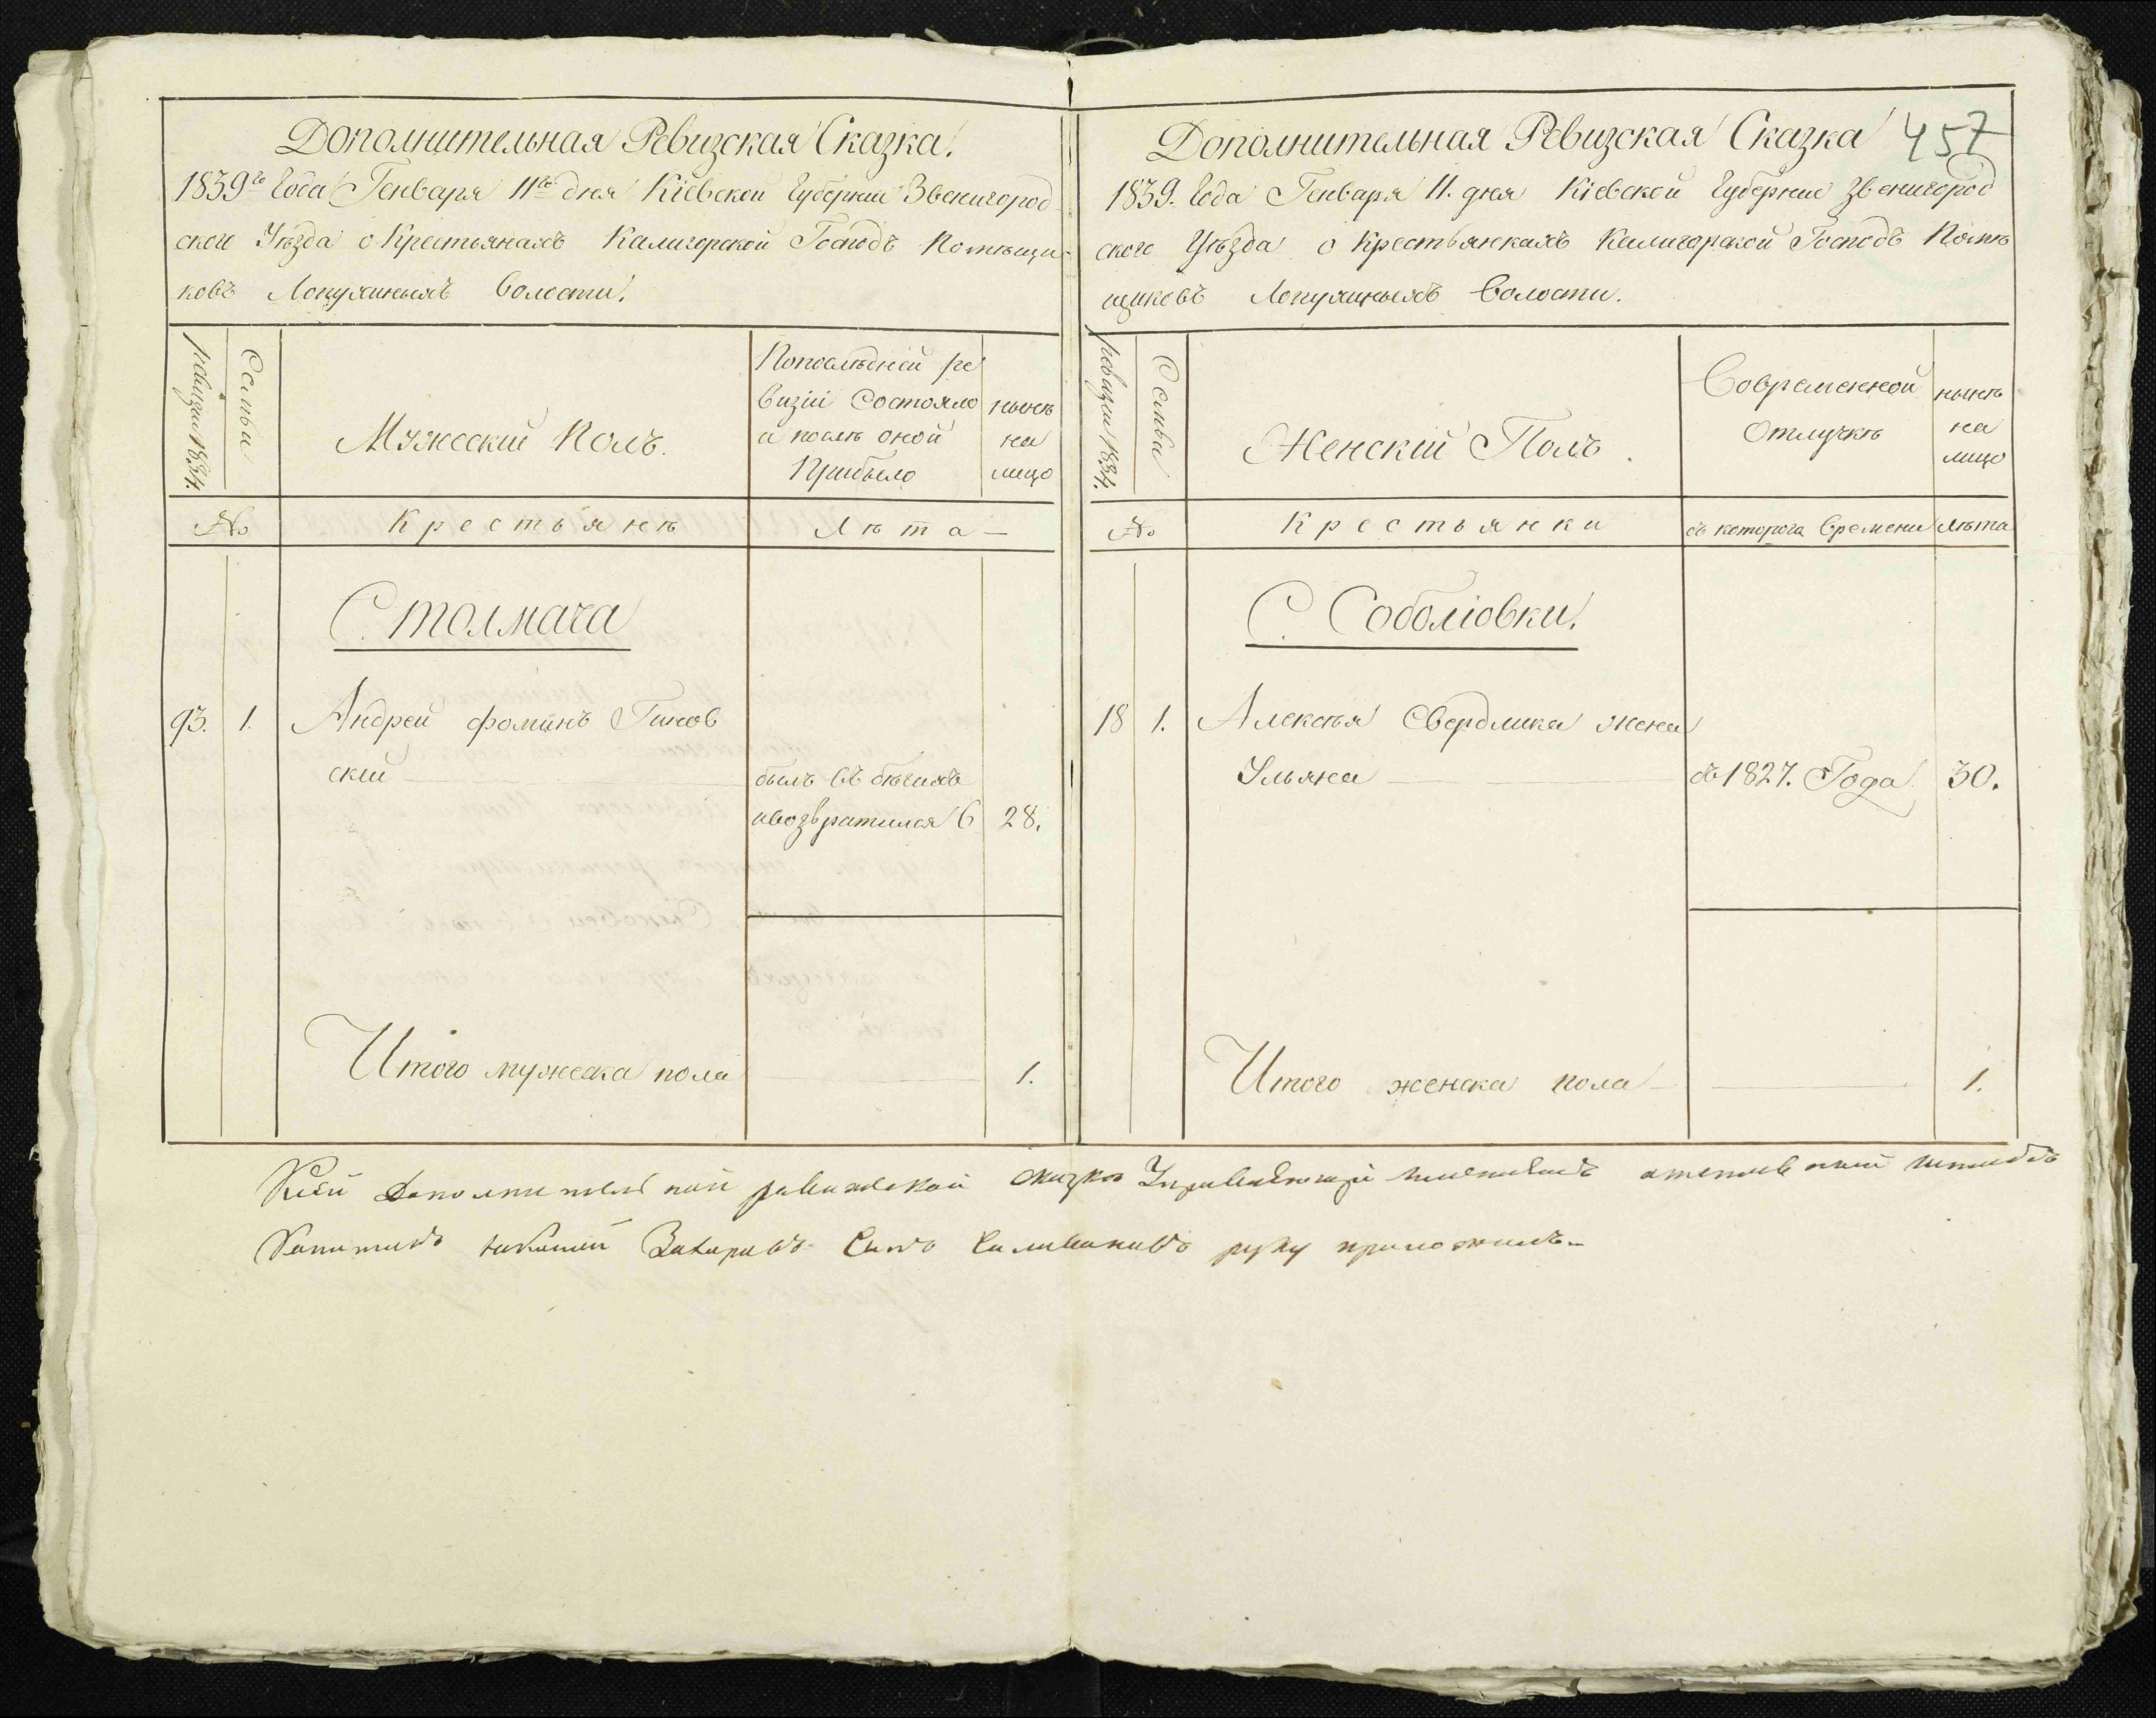 Дополнительная Ревизская Сказка.
1839го Года Генваря 11го дня Кіевской Губерніи Звенигород
ского Уѣзда о Крестьянахъ Калигорской Господъ Помѣщи
ковъ Лопухиныхъ Волости.
ревизіи 1834.
Семьи
Мужескій Полъ.
Попослѣдней ре
визіи Состояло
и послѣ оной
Прибыло
нынѣ
на
лицо
№
Крестьянѣ
Лѣта
С. Толмача
93. 1. Андрей Фоминъ Гинов
скій
былъ въ бѣгахъ
ивозвратился 6 28.
Итого мужеска пола 1.
Дополнительная Ревизская Сказка 457
1839. Года Генваря 11. дня Кіевской Губерніи Звенигород
ского Уѣзда о Крестьянкахъ Калигорской Господъ Помѣ
щиковъ Лопухиныхъ Волости.
ревизіи 1834.
Семьи
Женскій Полъ.
Вовременной
Отлучкѣ
нынѣ
на
лицо
№
Крестьянки
съ которога Времени
лѣта
С. Соболіовки.
18 1. Алексѣя Свердлика жена
Ульяна съ 1827. Года 30.
Итого женска пола 1.
Ксей дополнительной ревижской сказке Управляющій имениемъ отставной
Захаровъ Сынъ Селивановъ руку приложилъ